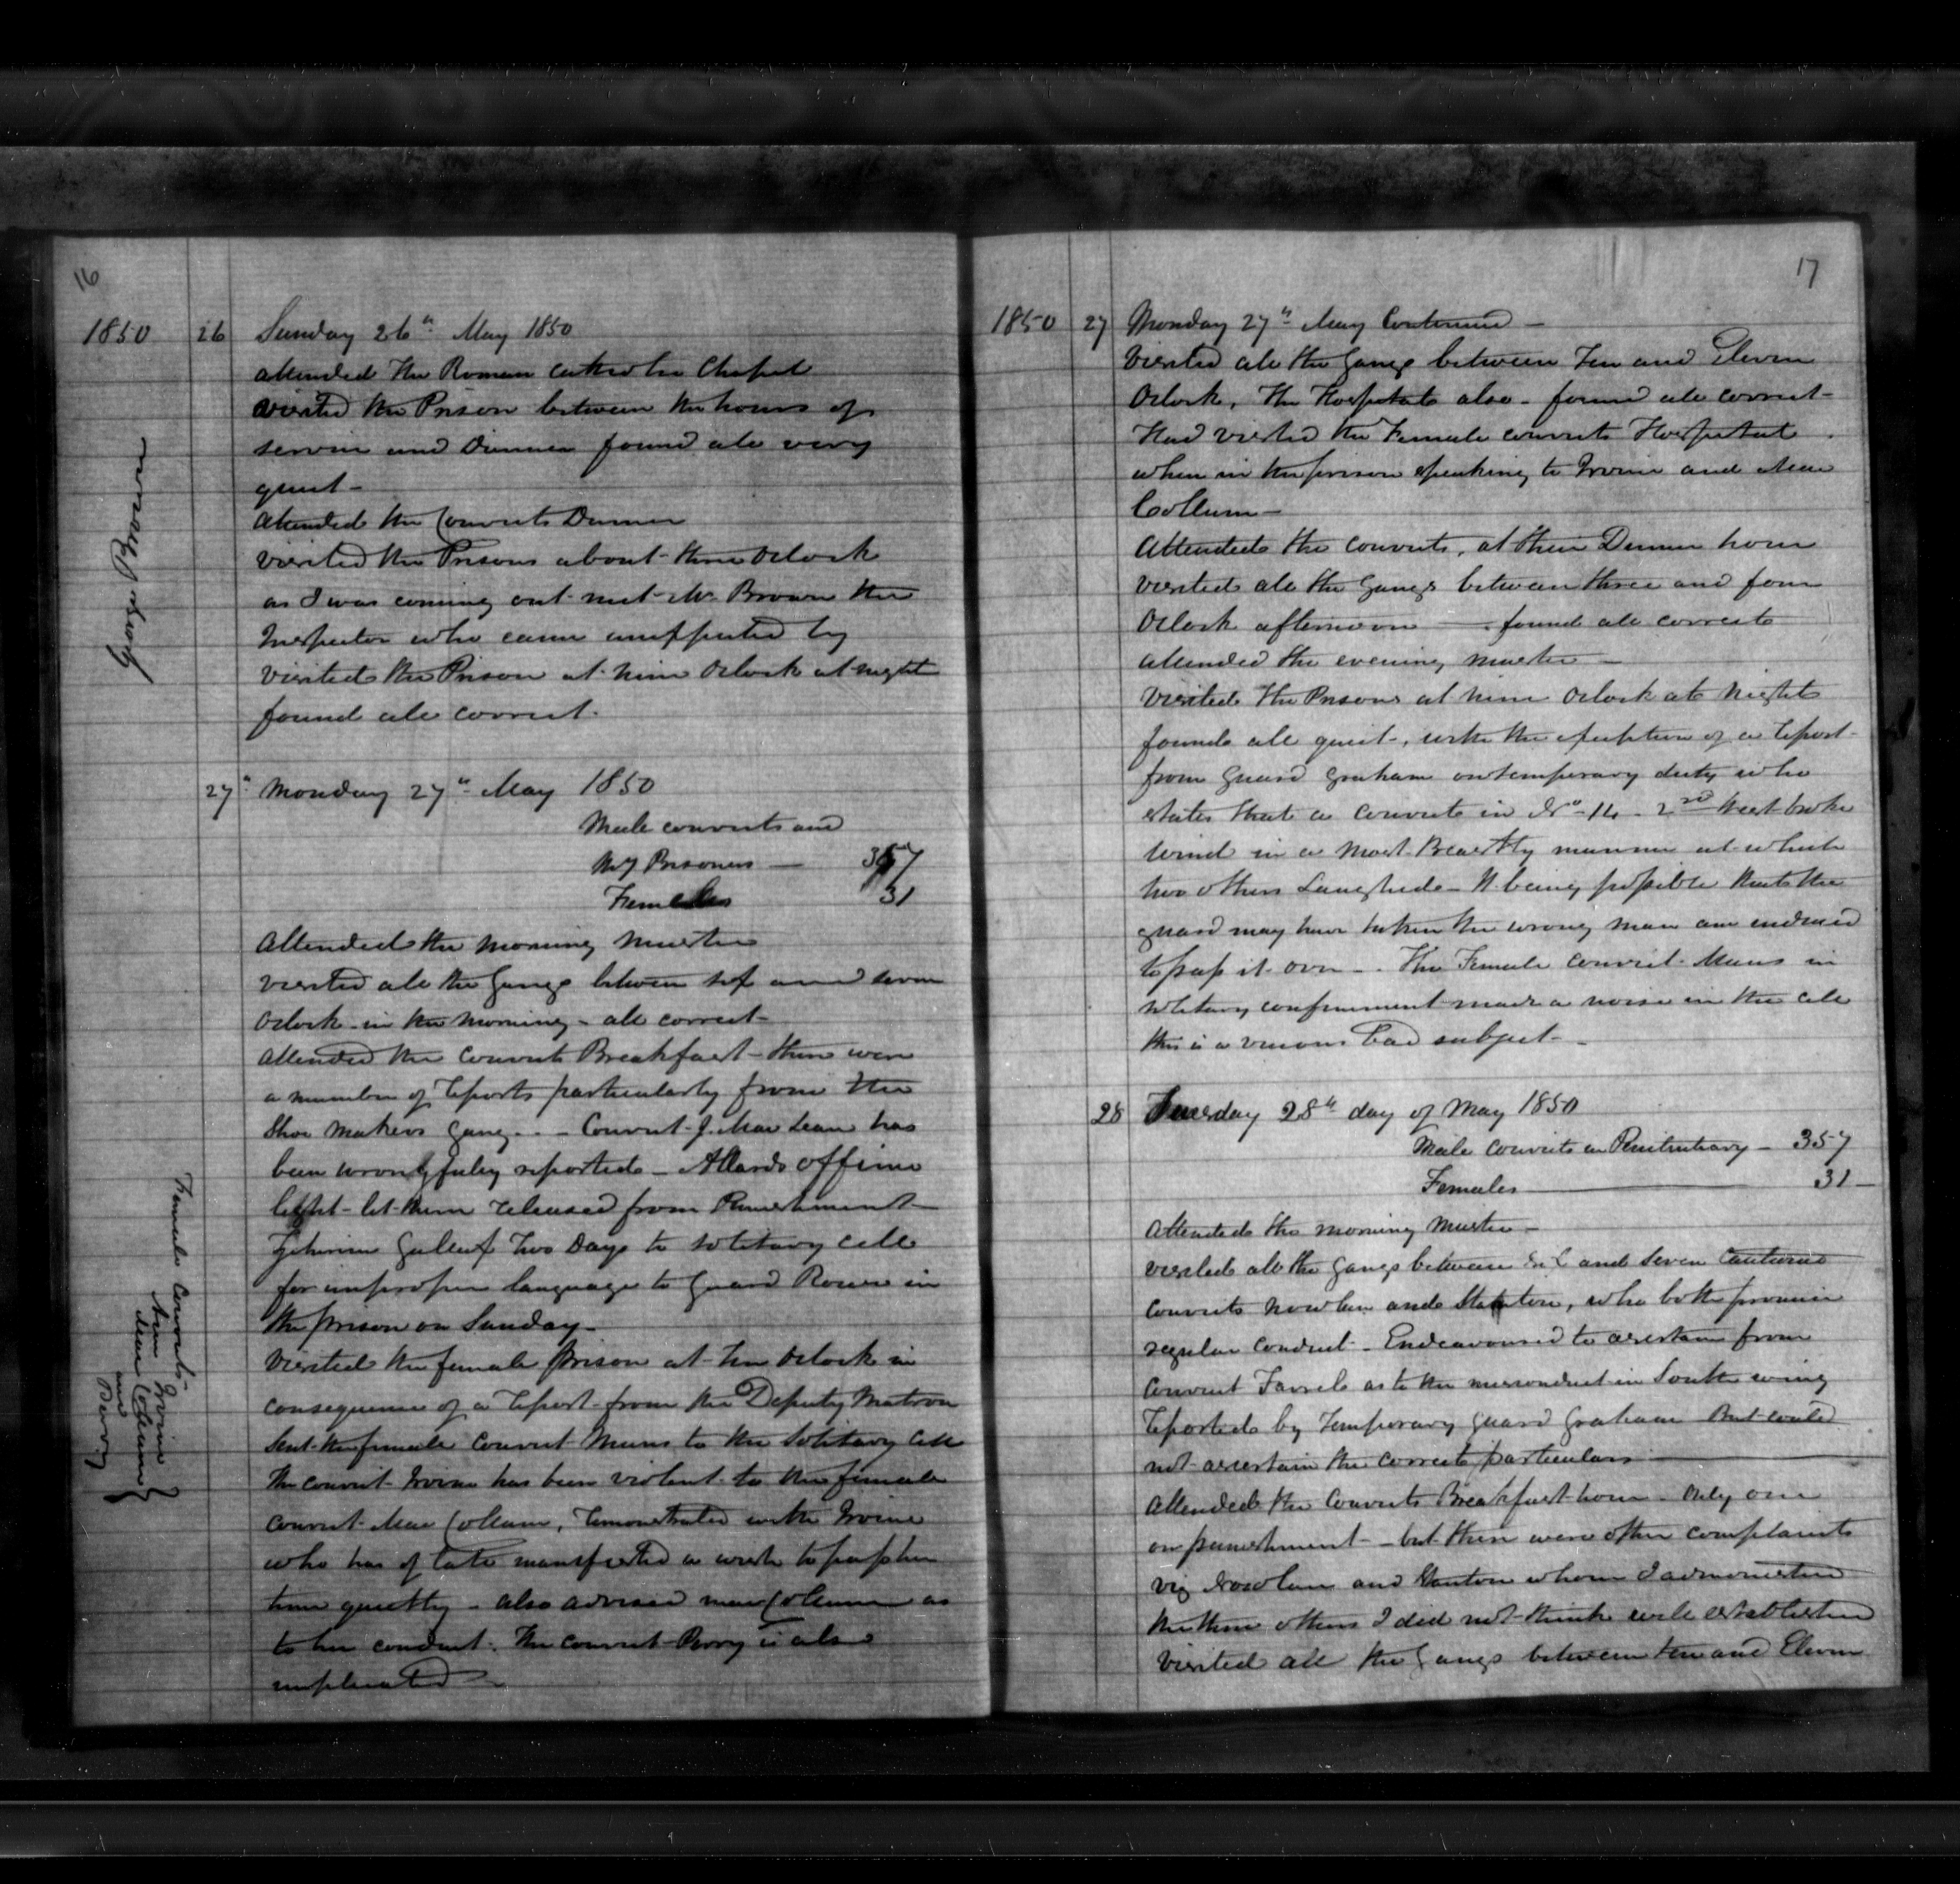 16
1850
26
Sunday 26th May 1850
Attended the Roman Catholic Chapel
visited the Prison between the hours of
service and Dinner found all very
quiet -
Attended the Convicts Dinner
visited the Prisons about three Oclock
as I was coming out met Mr. Brown the
Inspector who came unexpectedly
visited the Prison at nine Oclock at night
found all correct.
George Brown
27th Monday 27th May 1850
Male convicts and
My Prisoners — 357
Females 31
Attended the morning Muster
visited all the Gangs between six and seven
Oclock in the morning - all correct -
Attended the Convicts Breakfast - there were
a number of Reports particularly from the
Shoe Makers Gang - - Convict J. Mac Lean has
been wrongfully reported - Allards offence
light - let them released from Punishment -
two Days to solitary cell
for improper language to Guard in
the prison on Sunday -
Visited the female prison at ten Oclock in
consequence of a Report from the Deputy Matron
Sent the female Convict Muns to the Solitary Cell
The convict Irvine has been violent to the female
convict Mac Collum, Remonstrated with Irvine
who has of late manifested a wish to pass her
time quietly - also advised Mac Collum as
to her conduct. The convict Perry is also
implicated -
Female Convicts -
Ann Irvine
Mac Collum
and
Perry
17
1850
27
Monday 27th May Continued -
Visited all the Gangs between Ten and Eleven
Oclock, The Hospital also - found all correct -
Had visited the Female convicts Hospital
when in the prison speaking to Irvine and Mac
Collum -
Attended the convicts, at their Dinner hour
visited all the Gangs between three and four
Oclock afternoon — found all correct
Attended the evening muster -
Visited the Prisons at nine Oclock at Night
found all quiet -, with the exception of a Report
from Guard Graham on temporary duty who
states that a convict in No. 14 - 2nd West broke
wind in a most Beastly manner at which
two others Laughed - It being possible that the
guard may have taken the wrong man am induced
to pass it over - . The Female convict Muns in
solitary confinement made a noise in the cell
this is a vicious bad subject -
28
Tuesday 28th day of May 1850
Male convicts in Penitentiary - 357
Females — 31 -
Attended the morning Muster -
visited all the Gangs between six and seven Cautioned
convicts Nowlan and Stanton, who both promise
regular conduct - Endeavoured to ascertain from
Convict Farrel as to the misconduct in South wing
Reported by Temporary Guard Graham But could
not ascertain the correct particulars —
Attended the Convicts Breakfast hour - Only one
on punishment - but there were other complaints
viz Nowlan and Stanton whom I admonished
the three others I did not think well established
Visited all the Gangs between ten and Eleven